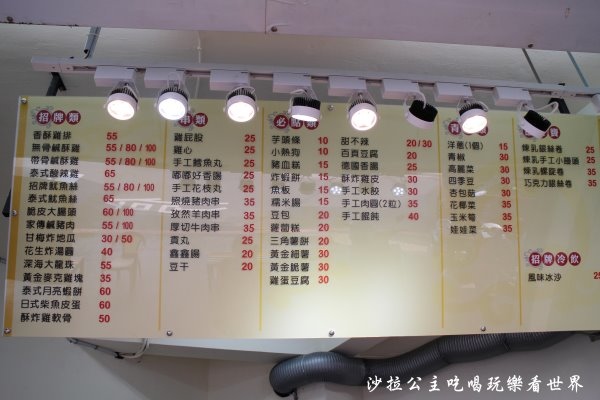 招牌類
香酥雞排 55
無骨鹹酥雞 55 / 80 / 100
帶骨鹹酥雞 55 / 80 / 100
泰式酸辣雞 65
招牌魷魚絲 55 / 80 / 100
泰式魷魚絲 65
脆皮大腸頭 60 / 100
家傳鹹豬肉 55 / 100
甘梅炸地瓜 30 / 50
花生炸湯圓 40
深海大龍珠 55
黃金麥克雞塊 35
泰式月亮蝦餅 60
日式柴魚皮蛋 60
酥炸雞軟骨 50
串類
雞屁股 25
雞心 25
手工鱈魚丸 25
嘟嘟好香腸 25
手工花枝丸 25
照燒豬肉串 35
孜然羊肉串 35
厚切牛肉串 35
貢丸 20
鑫鑫腸 20
豆干 20
必點類
芋頭條 10
小熱狗 10
豬血糕 15
炸蝦餅 15
魚板 15
糯米腸 15
豆包 20
蘿蔔糕 20
三角薯餅 20
黃金細薯 30
黃金脆薯 30
雞蛋豆腐 30
甜不辣 20/30
百頁豆腐 20
德國香腸 25
酥炸雞皮 30
手工水餃 30
手工肉圓(2粒) 35
手工餛飩 40
洋蔥(1個) 15
青椒 30
高麗菜 30
四季豆 30
杏包菇 30
花椰菜 35
玉米筍 35
娃娃菜 35
煉乳銀絲卷 25
煉乳手工小饅頭 25
煉乳螺旋卷 35
巧克力銀絲卷 35
招牌冷飲
風味冰沙 25
沙拉公主吃喝玩樂看世界